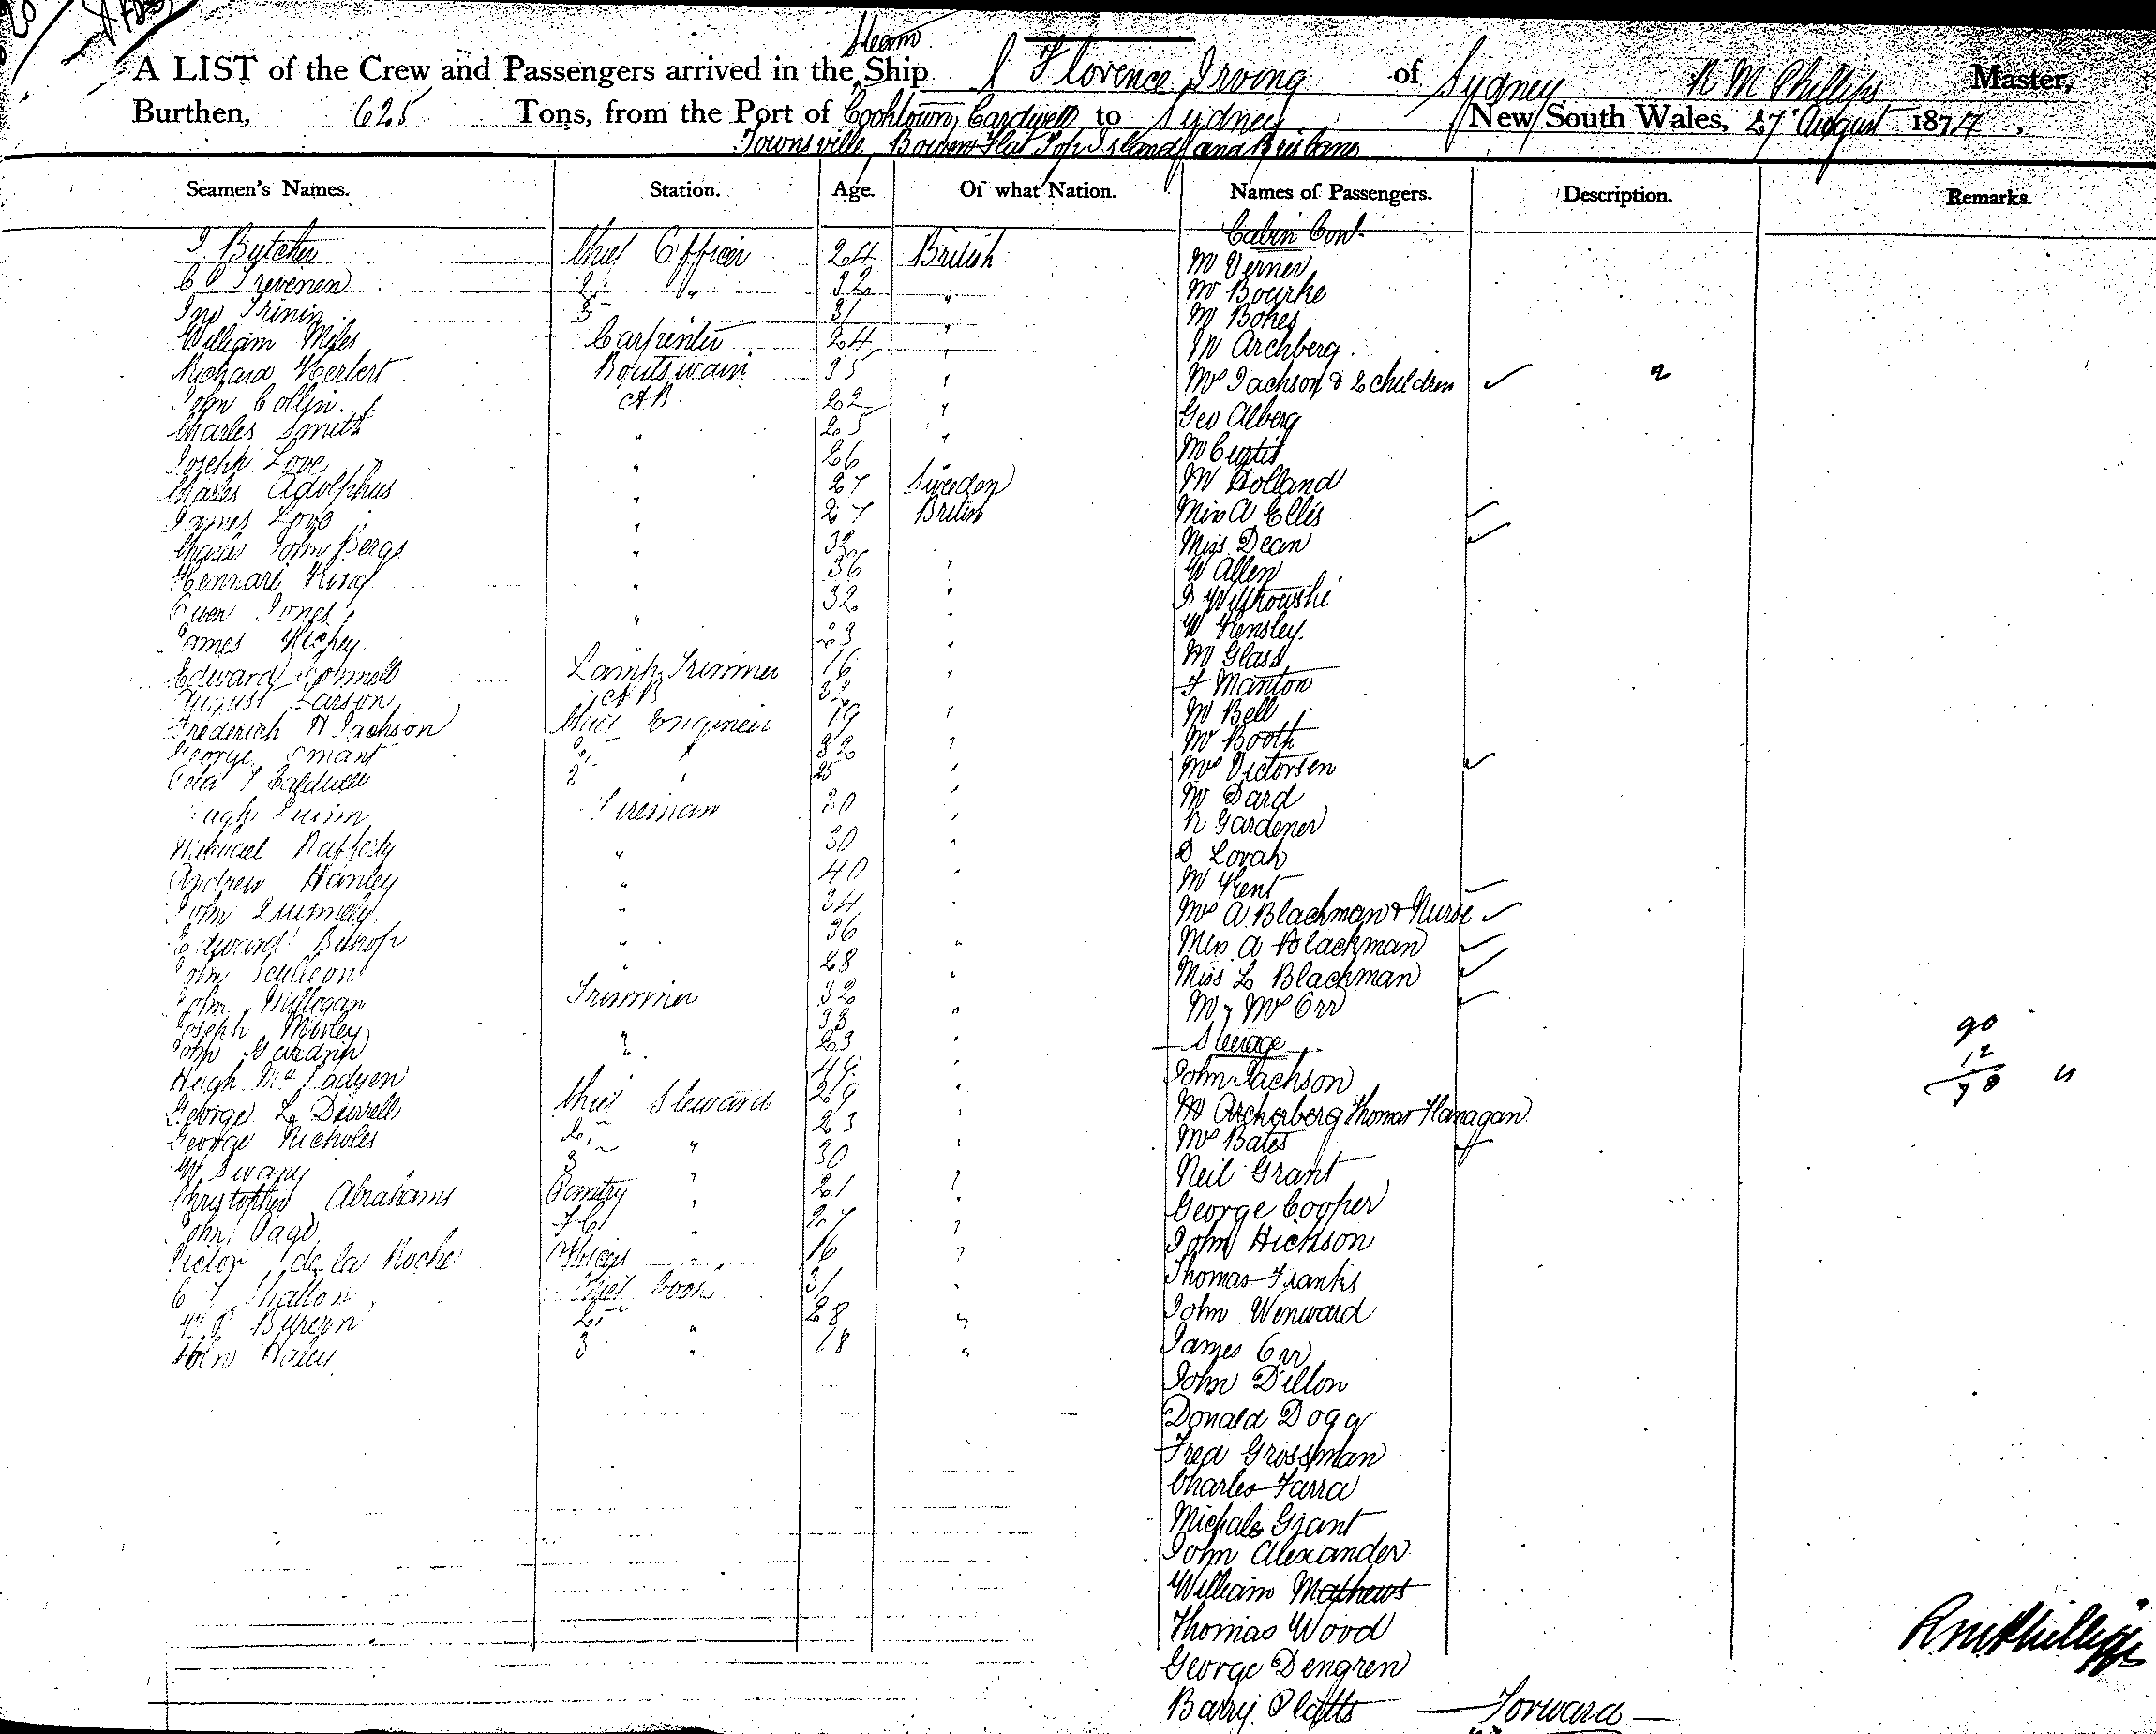 Steam
A LIST of the Crew and Passengers arrived in the Ship Florence Irving of Sydney R M Phillips Master,
Burthen, 625 Tons, from the Port of Cooktown, Cardwell to Sydney New South Wales, 27 August 1877
Townsville, Bowen Flat Top Island and Brisbane
Seamen's Names. Station. Age. Of what Nation. Names of Passengers. Description. Remarks.
Cabin Cont.
Butcher Chief Officer 24 British Mr Verner
Trevenen 2 " 32 " Mr Bourke
Jno 3 31 " Mr
William Miles Carpenter 24 " Mr Archberg
Richard Herbert Boatswain 35 " Mrs Jackson & 2 children ✓ 2
John Collin AB 22 " Geo Alberg
Charles Smith " 25 " Mr Curtis
Joseph Love " 26 Mr Holland
Charles Adolphus " 27 Sweden Miss A Ellis ✓
James Love " 27 British Miss Dean ✓
Charles John Bergs " 32 W Allen
King " 36 "
Owen Jones " 32 " W Hensley
James Hickey " 23 " Mr Glass
Edward Connell Lamp Trimmer 16 " F Manton
August Larson AB 32 Mr Bell
Frederick H Jackson Chief Engineer 19 " Mr Booth
George Smart 2 " 32 " Mrs Victorsen ✓
3 " 25 " Mr Dard
Hugh Quinn Fireman 30 " R Gardener
Michael Rafferty " 30 " D Lovah
Andrew Hanley " 40 " Mr Kent
John " 34 Mrs A Blackman & Nurse ✓
Edward Bishop " 36 " Miss A Blackman ✓
John " 28 " Miss L Blackman ✓
John Millogan Trimmer 32 " Mr & Mrs Orr ✓
Joseph Morley 33 " Steerage 90
John " 23 " John Jackson 12
Hugh 44 " Mr Archerberg Thomas Flanagan 78
George L Durrell Chief Steward 29 " Mrs Bates ✓
George Nicholes 2 " 23 " Neil Grant
3 " 30 George Cooper
Christopher Abrahams Pantry " 21 " John Hickson
John Page F C " 27 " Thomas Franks
Victor de la Roche Officers 16 " John Wenward
Shallon Chief Cook 31 " James Orr
2 " 28 " John Dillon
John Haley 3 " 18 " Donald Dogg
Fred Grossman
Charles Farra
Michale Grant
John Alexander
William Mathews
Thomas Wood
George Dengren
Barry Platts
Forward
R M Phillips